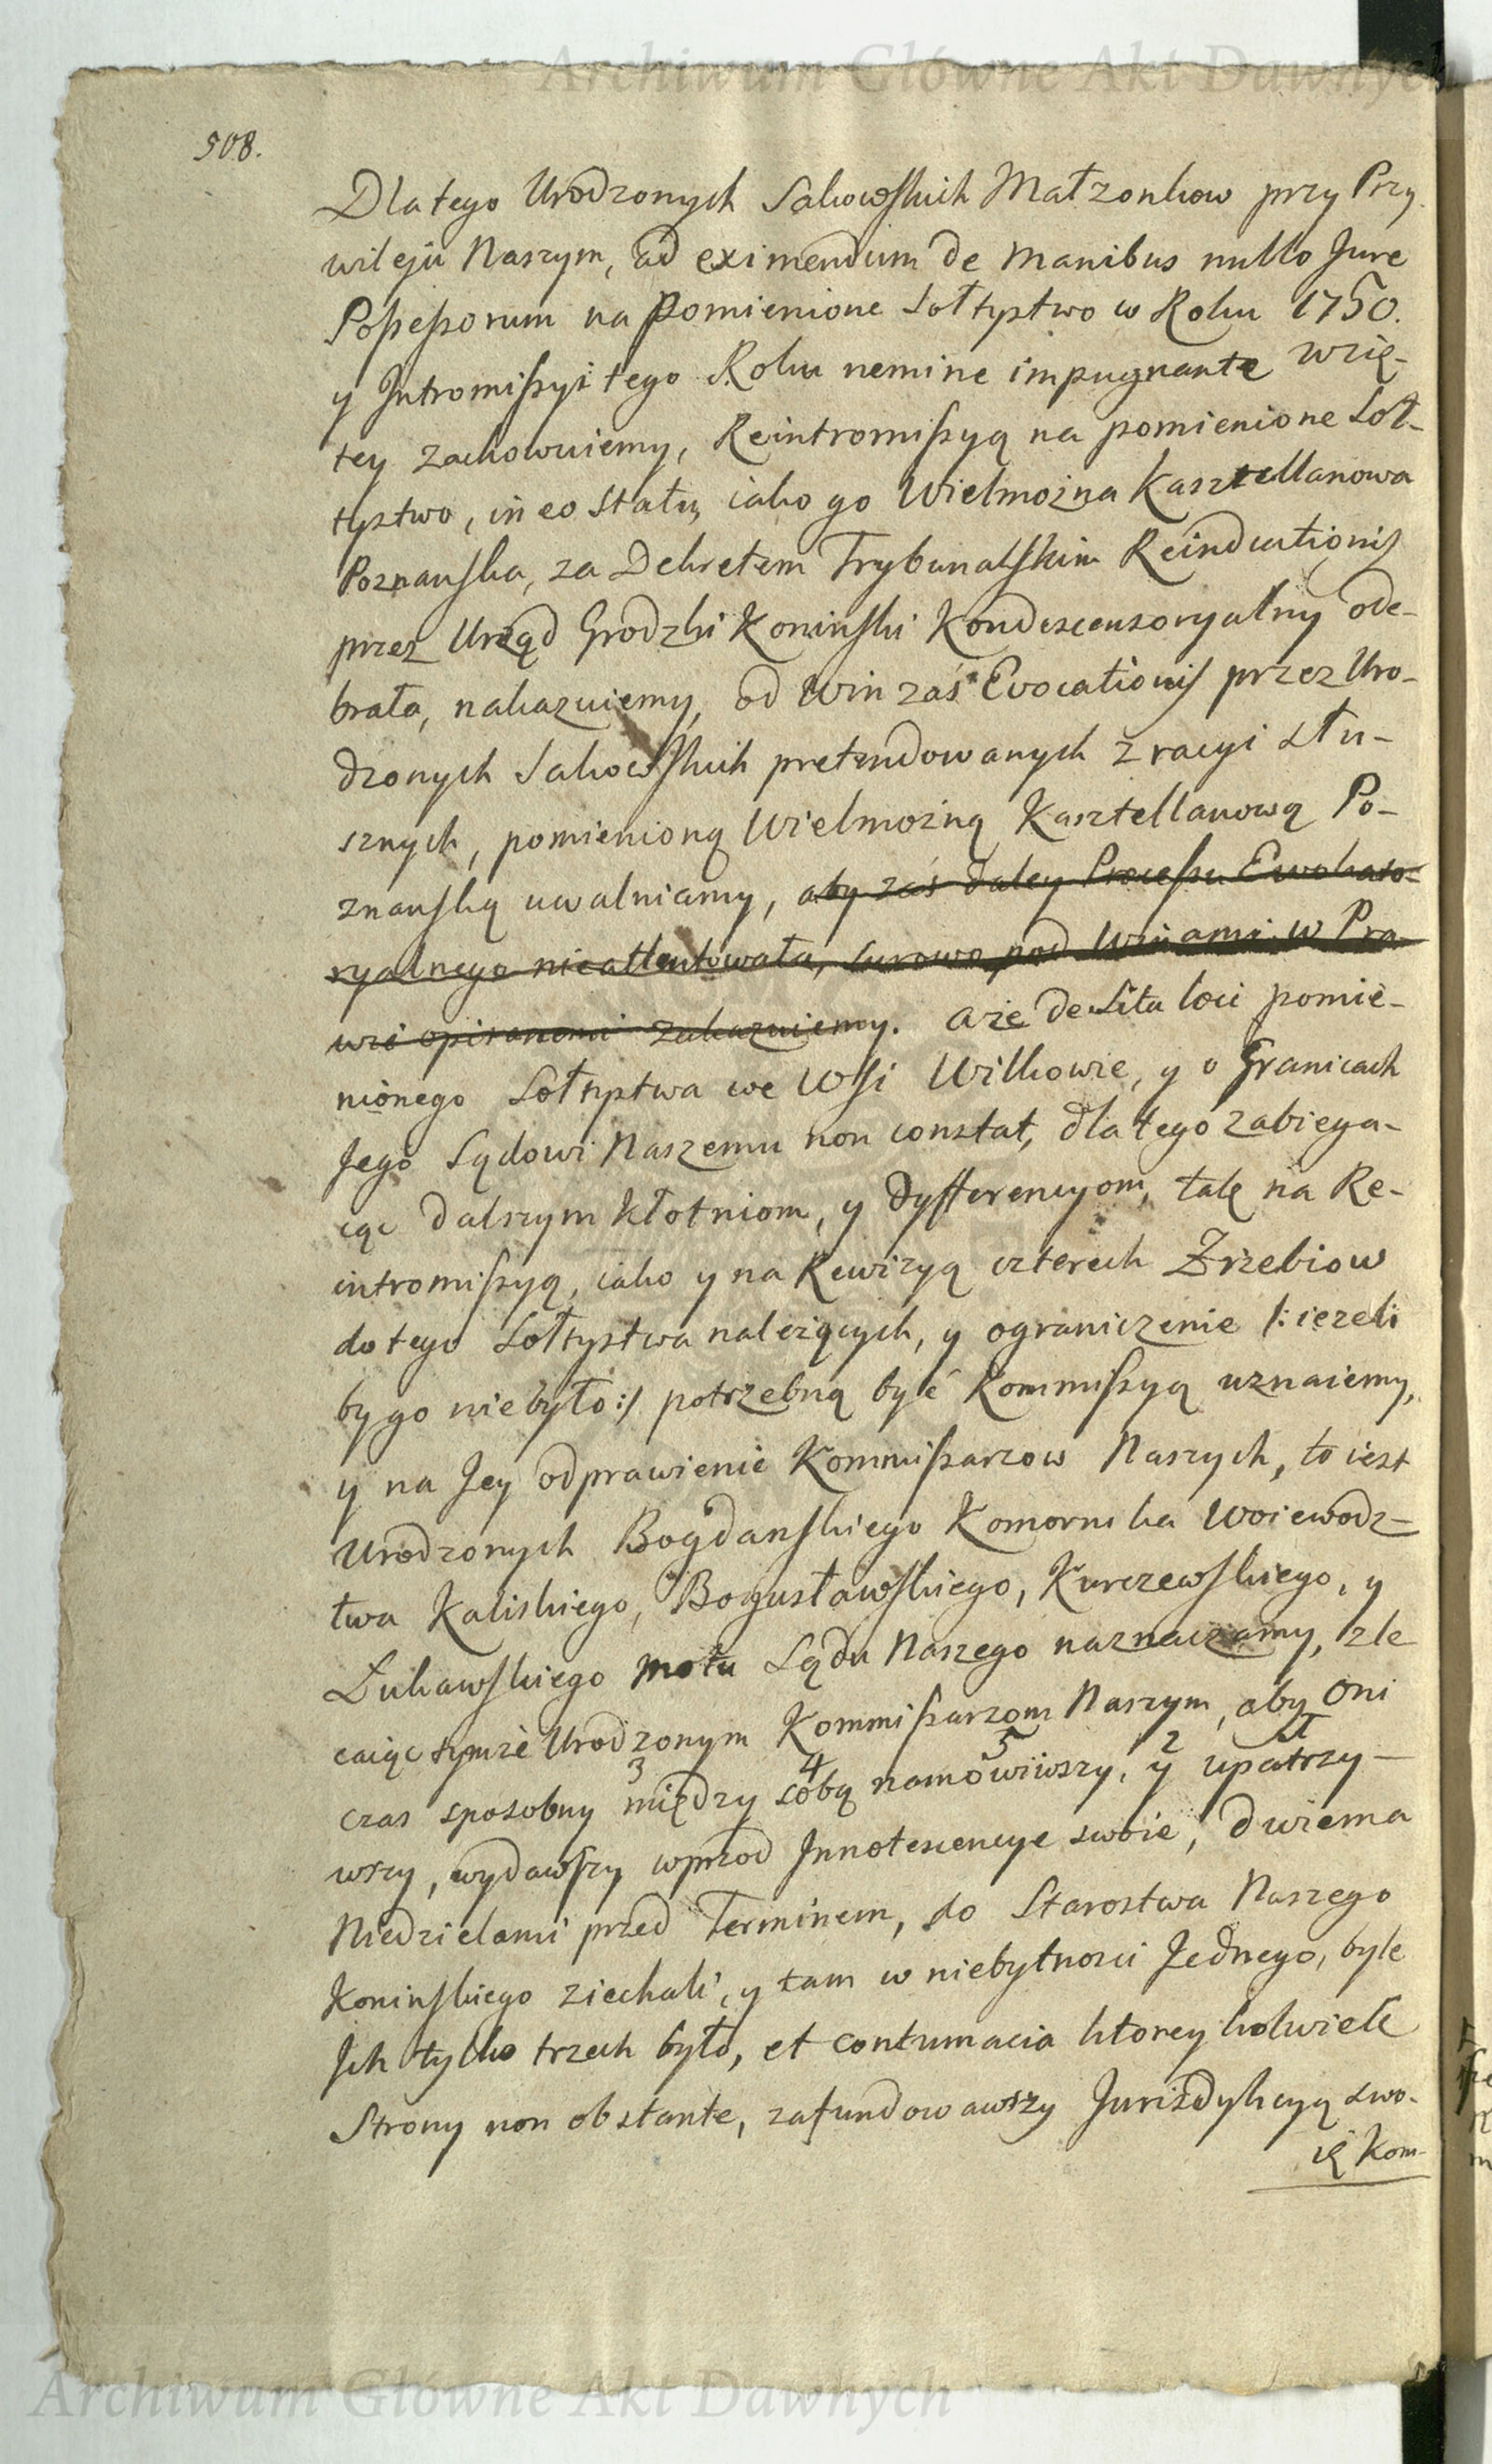 Archiwum Główne Akt Dawnych
508.
Dlatego Urodzonych Sakowskich Małzonkow przy Przy
wileju Naszym, ad eximendum de manibus nullo Jure
Possessorum na pomienione Sołtystwo w Roku 1750.
y Intromissyi tego Roku nemine impugnante wzię-
tey zachowuiemy, Reintromissyą na pomienione Soł-
tystwo, in eo statu, iako go Wielmozna Kasztellanowa
Poznanska, za Dekretem Trybunalskim Reinductionis
przez Urząd Grodzki Koninski Kondescensoryalny ode-
brała, nakazuiemy, od Win zaś Evocationis przez Uro-
dzonych Sakowskich pretendowanych z racyi słu-
sznych, pomienioną Wielmozną Kasztellanową Po-
znanską uwalniamy, aby zaś daley Processu Ewokato-
ryalnego nieattentowała, surowo pod Winami w Pra-
wie opisanemi zakazuiemy. aże de Situ loci pomie-
nionego Sołtystwa we Wsi Wilkowie, y o Granicach
Jego Sądowi Naszemu non constat, dla tego zabiega-
iąc dalszym kłotniom, y dyfferencyom, tak na Re-
intromissyą, iako y na Rewizyą czterech Zrzebiow
do tego Sołtystwa należących, y ograniczenie /: iezeli
by go niebyło :/ potrzebną być Kommissyą uznaiemy,
y na Jey odprawienie Kommissarzow Naszych, to iest
Urodzonych Bogdanskiego Komornika Woiewodz-
twa Kaliskiego, Bogusławskiego, Kurczewskiego, y
Łukawskiego motu Sądu Naszego naznaczamy, zle
caiąc tymże Urodzonym Kommissarzom Naszym, aby oni
3 4 5 2 1
czas sposobny między sobą namowiwszy, y upatrzy-
wszy, wydawszy wprzod Innotescencye swoie, dwiema
Niedzielami przed Terminem, do Starostwa Naszego
Koninskiego ziechali, y tam w niebytnosci Jednego, byle
Ich tylko trzech było, et contumacia ktorey kolwiek
Strony non obstante, zafundowawszy Jurizdykcyą swo-
ią Kom-
Archiwum Główne Akt Dawnych